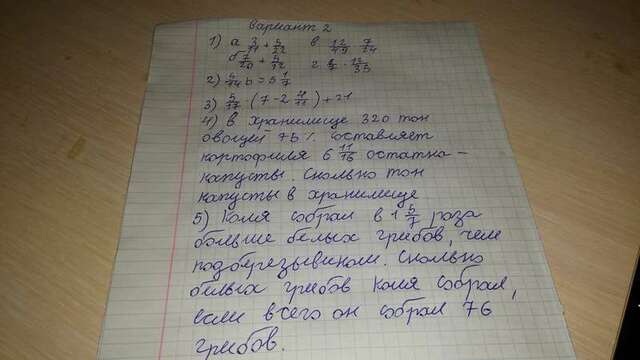 Вариант 2
1) а 3/11 + 5/22 в 12/49 7/24
б 7/20 + 5/12 г
2) 5/14 b = 5 1/7
3) 5/17 · (7 - 2 /11) + 21
4) в хранилище 320 тон
овощей 75% составляет
картофиля 6 11/16 остатка -
капусты. Сколько тон
капусты в хранилище
5) Коля собрал в 1 5/7 раза
больше белых грибов, чем
Сколько
белых грибов Коля собрал,
если всего он собрал 76
грибов.